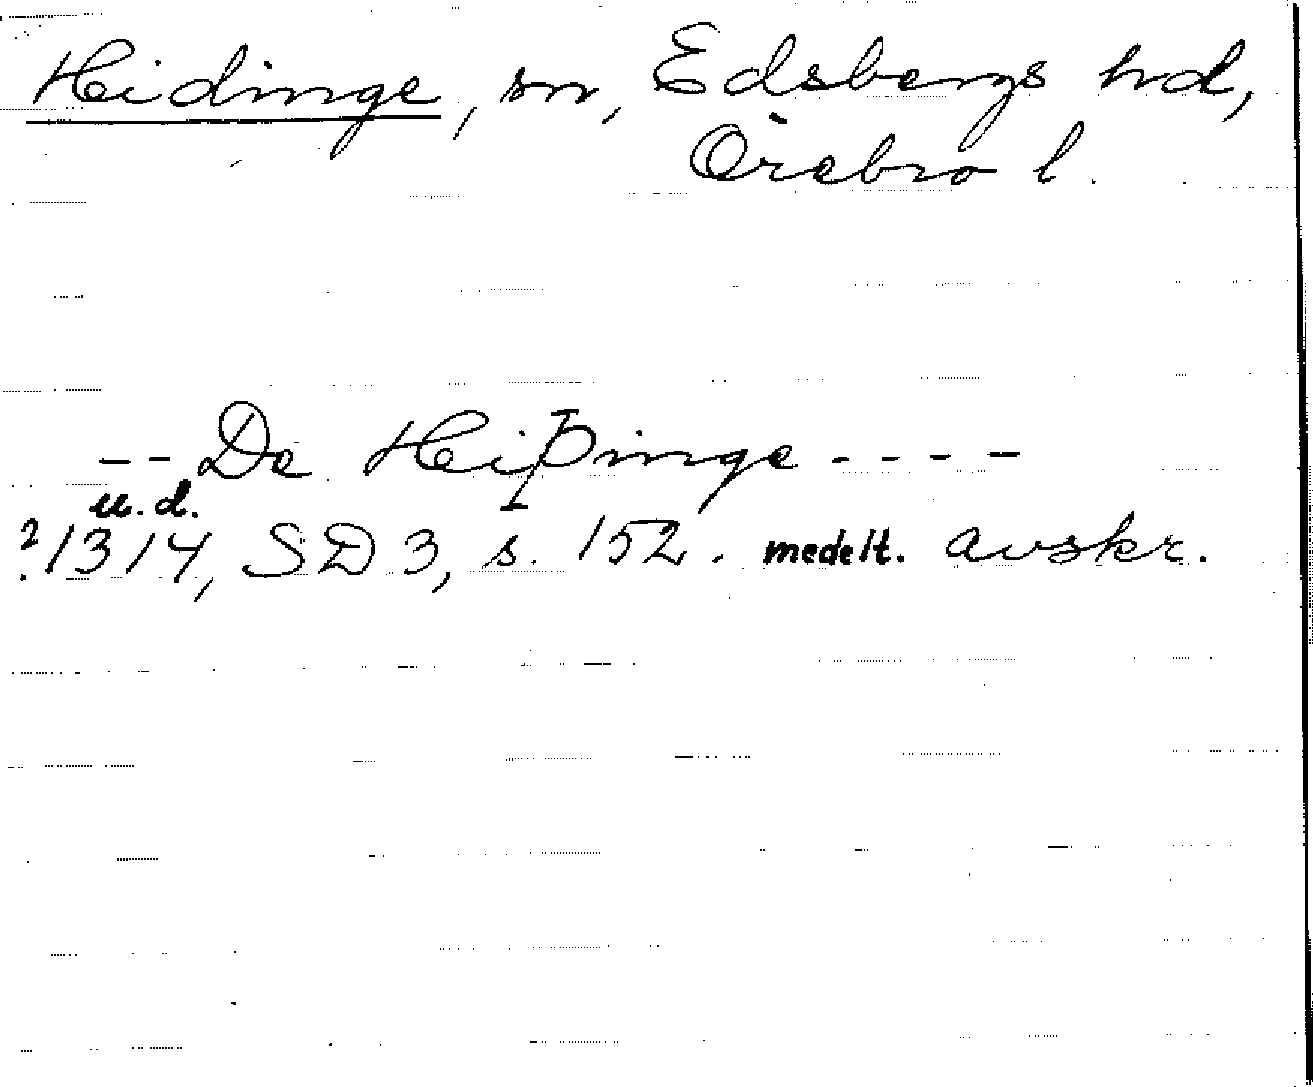 Heidinge, sn, Edsbergs hd,
Örebro l.
-- De Heiþinge ----
u.d.
? 1314, SD 3, s. 152. medelt. avskr.